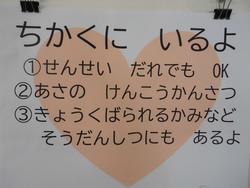 ちかくに　いるよ
①せんせい　だれでも　OK
②あさの　けんこうかんさつ
③きょうくばられるかみなど
そうだんしつにも　あるよ